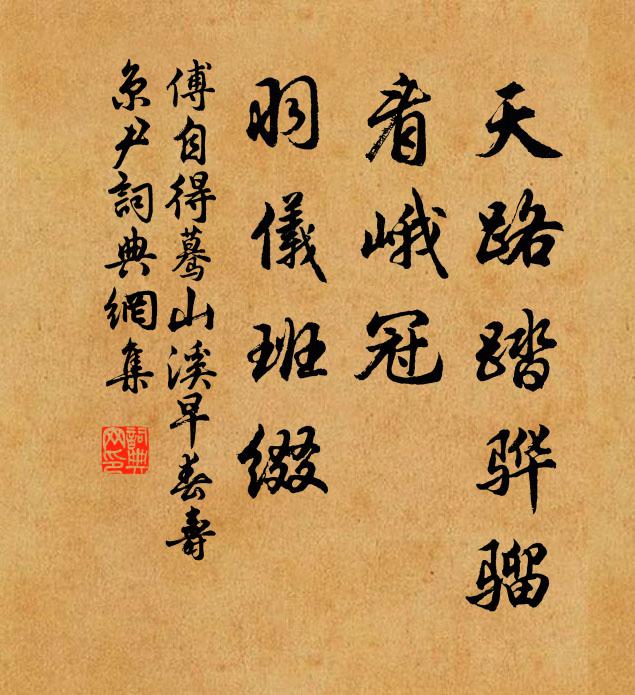 天路踏骅骝
看峨冠
羽儀班缀
傅自得蓦山溪早春壽
京尹詞典網集
詞典網印